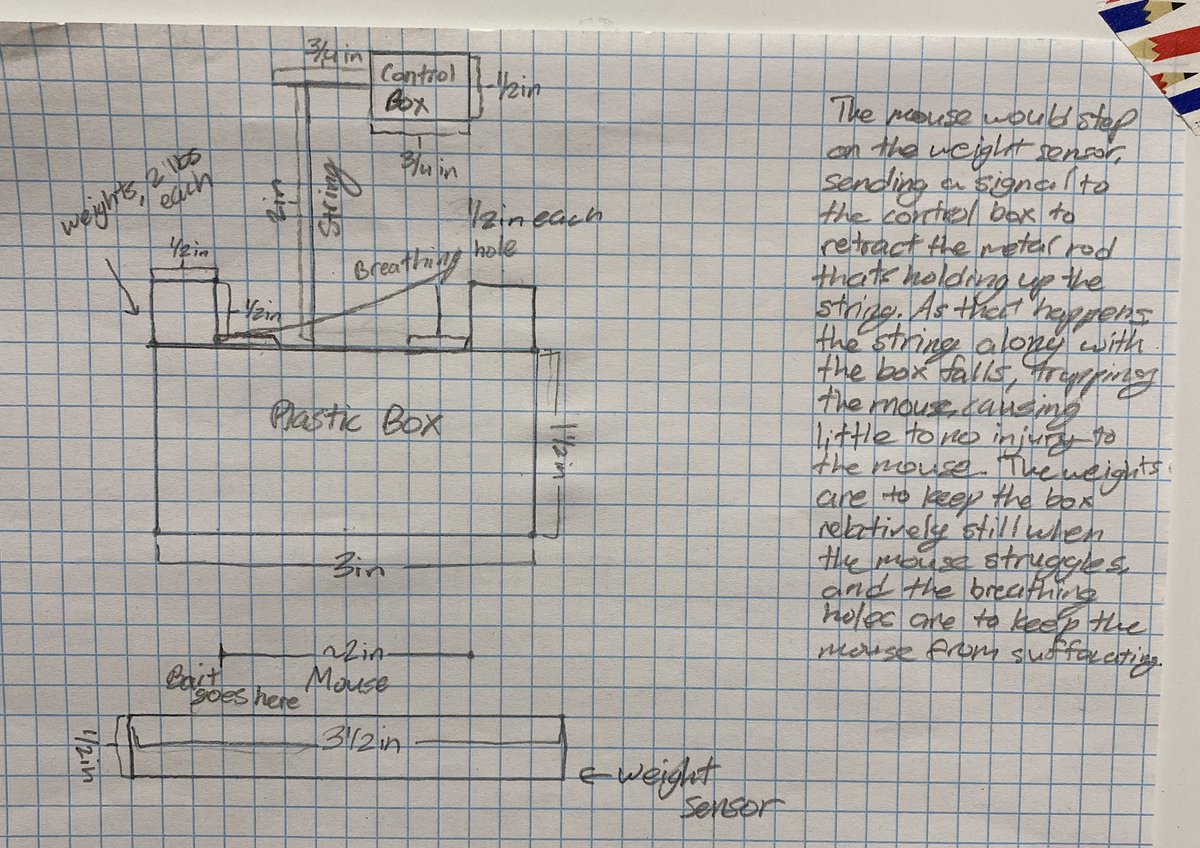 3/4 in
Control
Box
1/2in
3/4 in
weights, 2 lbs
each
2in
String
1/2in each
hole
Breathing
1/2 in
1/2in
Plastic Box
1 1/2 in
3in
~2in
Bait
goes here
Mouse
3 1/2 in
1/2 in
← weight
sensor
The mouse would step
on the weight sensor,
sending a signal to
the control box to
retract the metal rod
thats holding up the
string. As that happens,
the string along with
the box falls, trapping
the mouse, causing
little to no injury to
the mouse. The weights
are to keep the box
relatively still when
the mouse struggles,
and the breathing
holes are to keep the
mouse from suffocating.